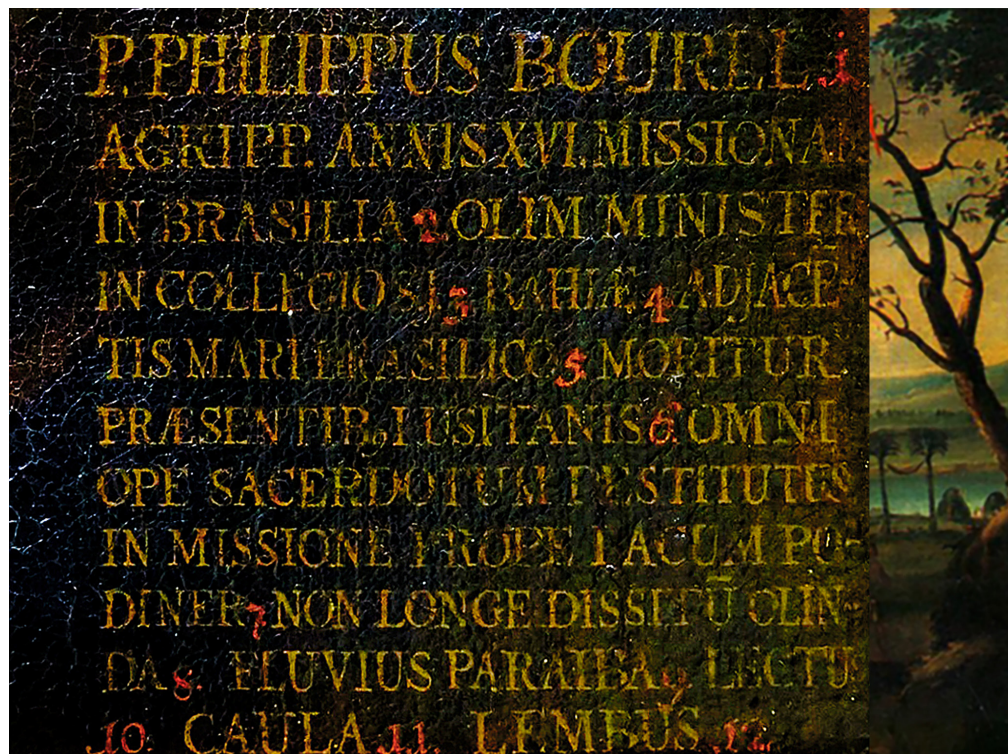 P. PHILIPPUS BOUREL 1
AGRIPP. ANNIS XVI. MISSIONAR
IN BRASILIA 2. OLIM MINISTER
IN COLLEGIO S.J. 3 BAHIÆ 4 ADJACE-
TIS MARI BRASILICO 5 MORITUR
PRÆSENTIB9 LUSITANIS 6. OMNI
OPE SACERDOTUM DESTITUTUS
IN MISSIONE PROPE LACUM PO-
DINER 7 NON LONGE DISSITŪ OLIN-
DA 8. FLUVIUS PARAIBA 9. LECTUS
10. CAULA 11. LEMBUS 12.